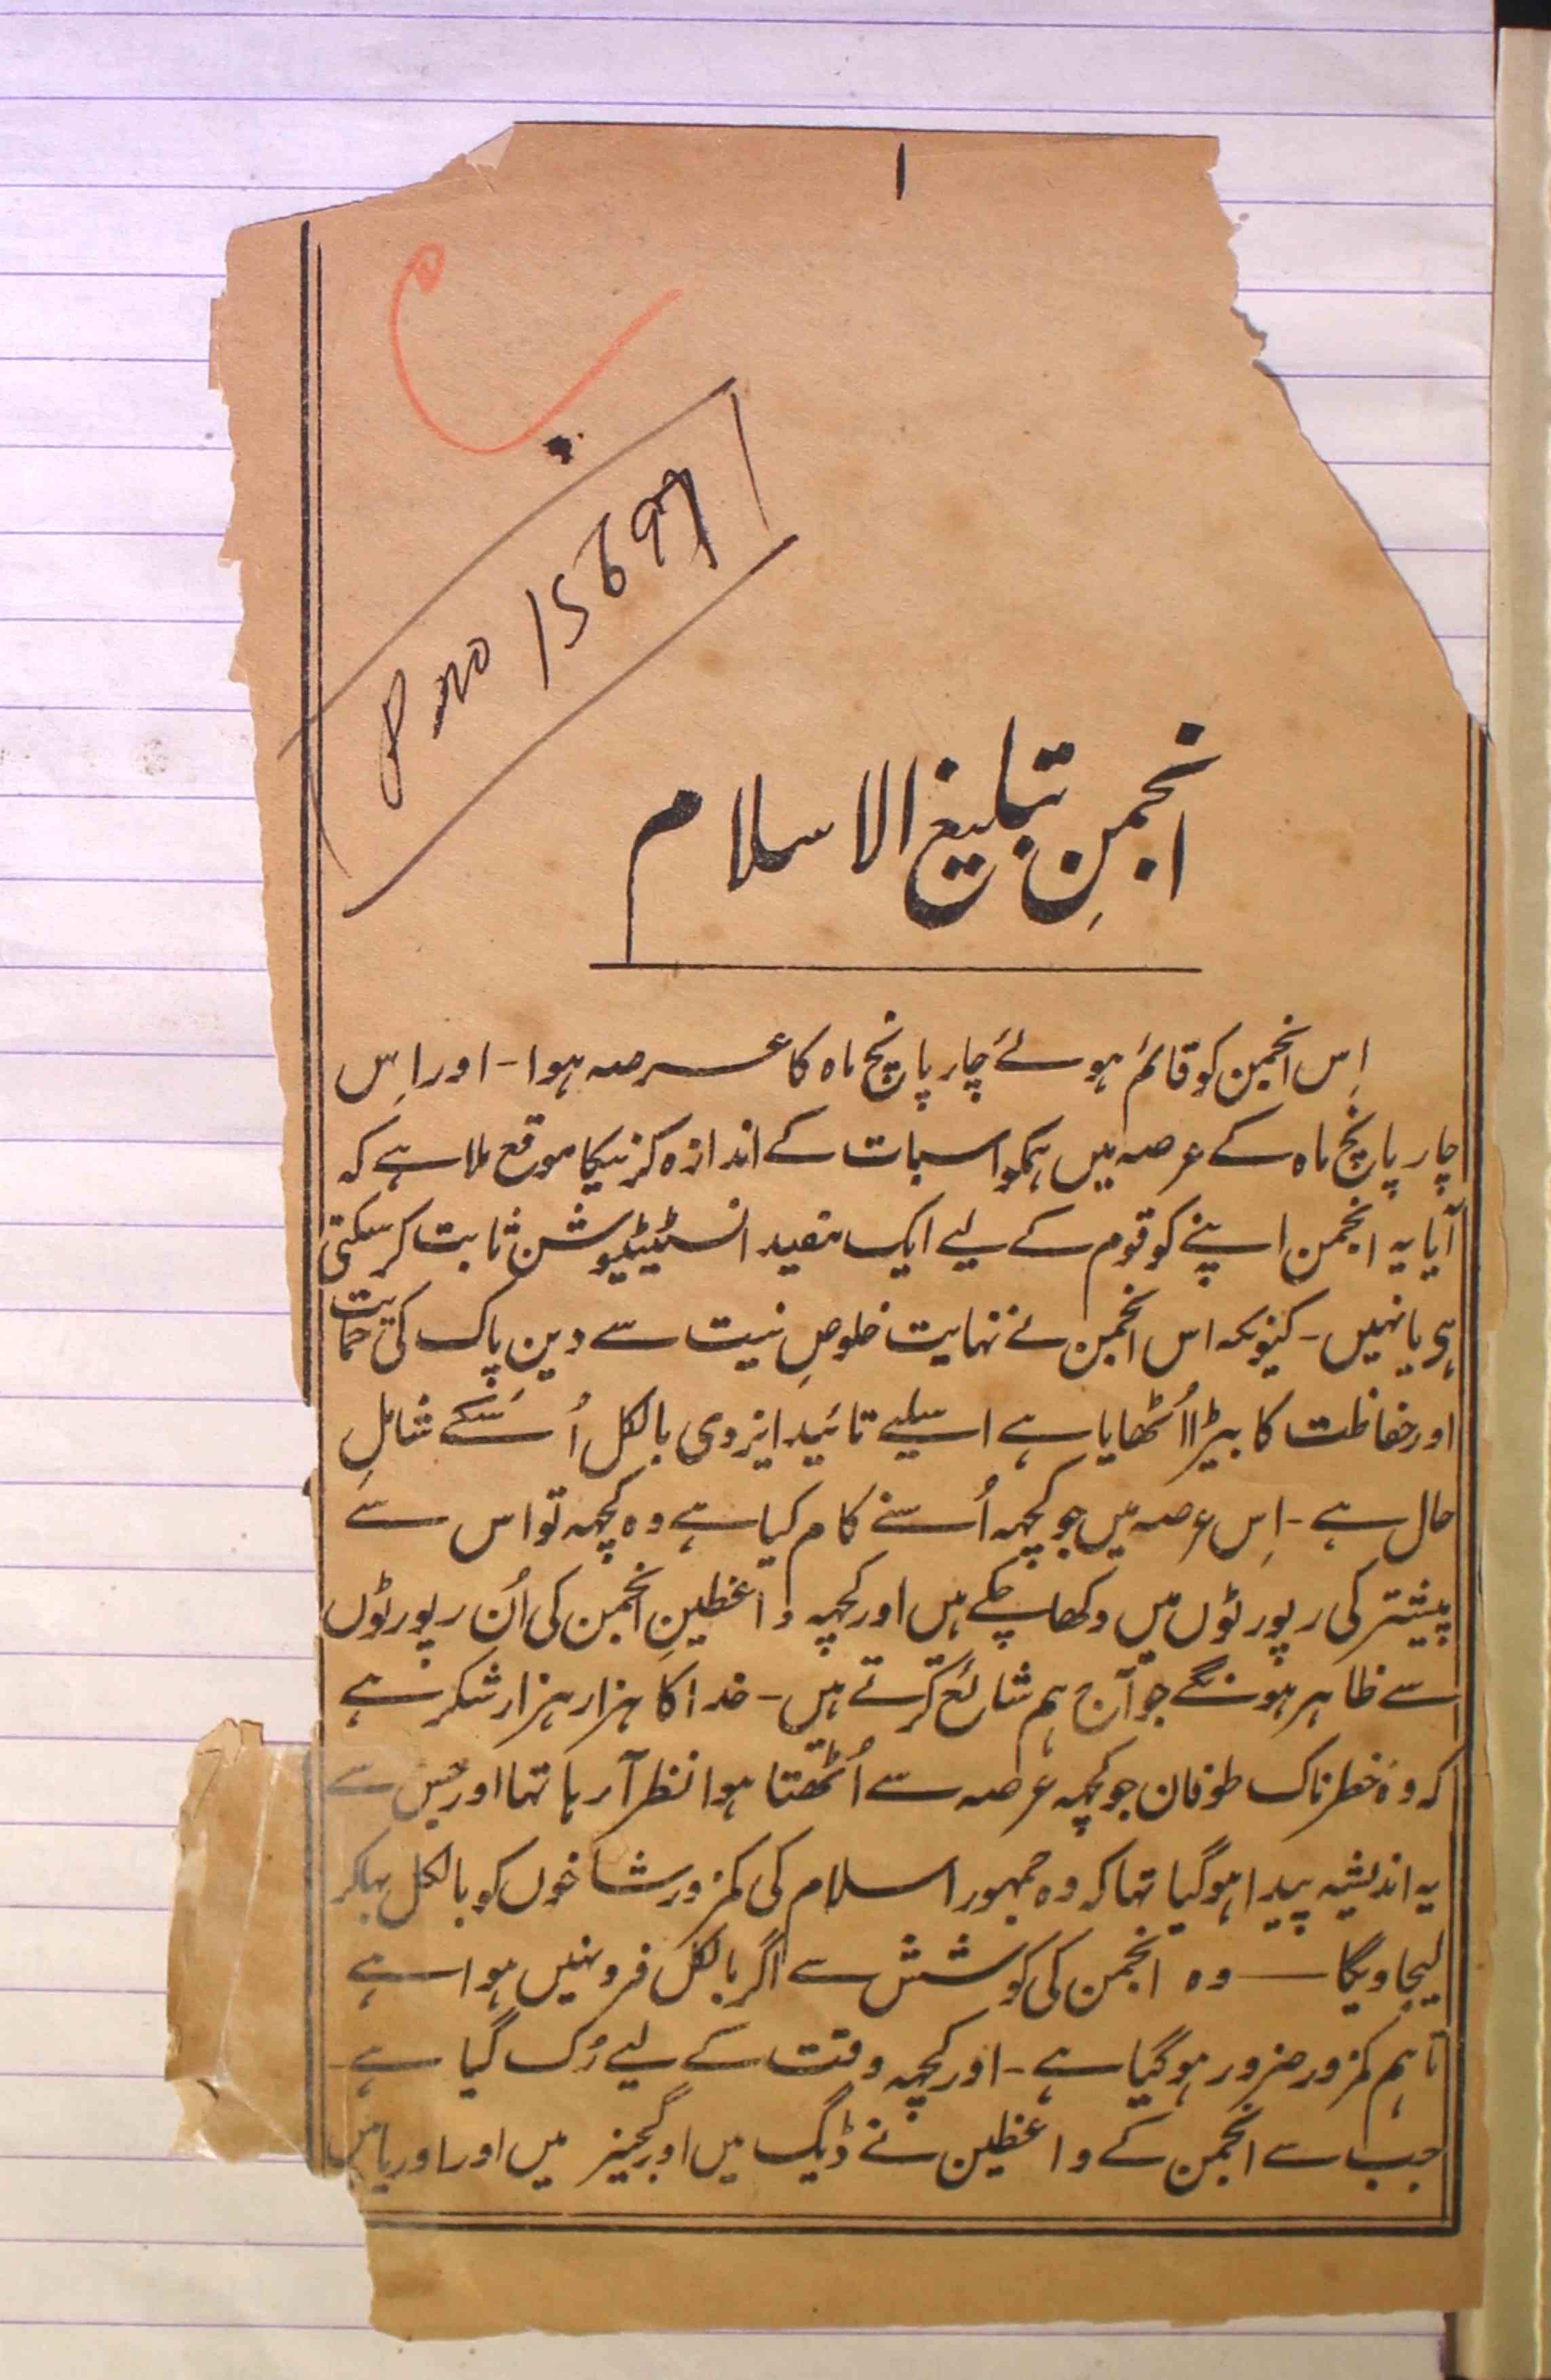 ۱
P no 15697
انجمنِ تبلیغ الاسلام
اِس انجمن کو قائم ہوئے چار پانچ ماہ کا عرصہ ہوا - اور اِس
چار پانچ ماہ کے عرصہ میں ہمکو اسبات کے اندازہ کرنیکا موقع ملا ہے کہ
آیا یہ انجمن اپنے کو قوم کے لیے ایک مفید انسٹیٹیوشن ثابت کرسکتی
ہی یا نہیں - کیونکہ اس انجمن نے نہایت خلوصِ نیت سے دین پاک کی حمایت
اور حفاظت کا بیڑا اُٹھایا ہے اسیلیے تائید ایزدی بالکل اُسکے شاملِ
حال ہے - اِس عرصہ میں جو کچہہ اُسنے کام کیا ہے وہ کچہہ تو اس سے
پیشتر کی رپورٹوں میں دکھا چکے ہیں اور کچہہ واعظینِ انجمن کی اُن رپورٹوں
سے ظاہر ہونگے جو آج ہم شائع کرتے ہیں - خدا کا ہزار ہزار شکر ہے
کہ وہ خطرناک طوفان جو کچہہ عرصہ سے اُٹھتا ہوا نظر آرہا تہا اور جس سے
یہ اندیشہ پیدا ہوگیا تہا کہ وہ جمہور اسلام کی کمزور شاخوں کو بالکل بہاکر
لیجاویگا — وہ انجمن کی کوشش سے اگر بالکل فرو نہیں ہوا ہے
تاہم کمزور ضرور ہوگیا ہے - اور کچہہ وقت کے لیے رُک گیا ہے -
جب سے انجمن کے واعظین نے ڈیگ میں اور کچیز میں اور اور یا میں